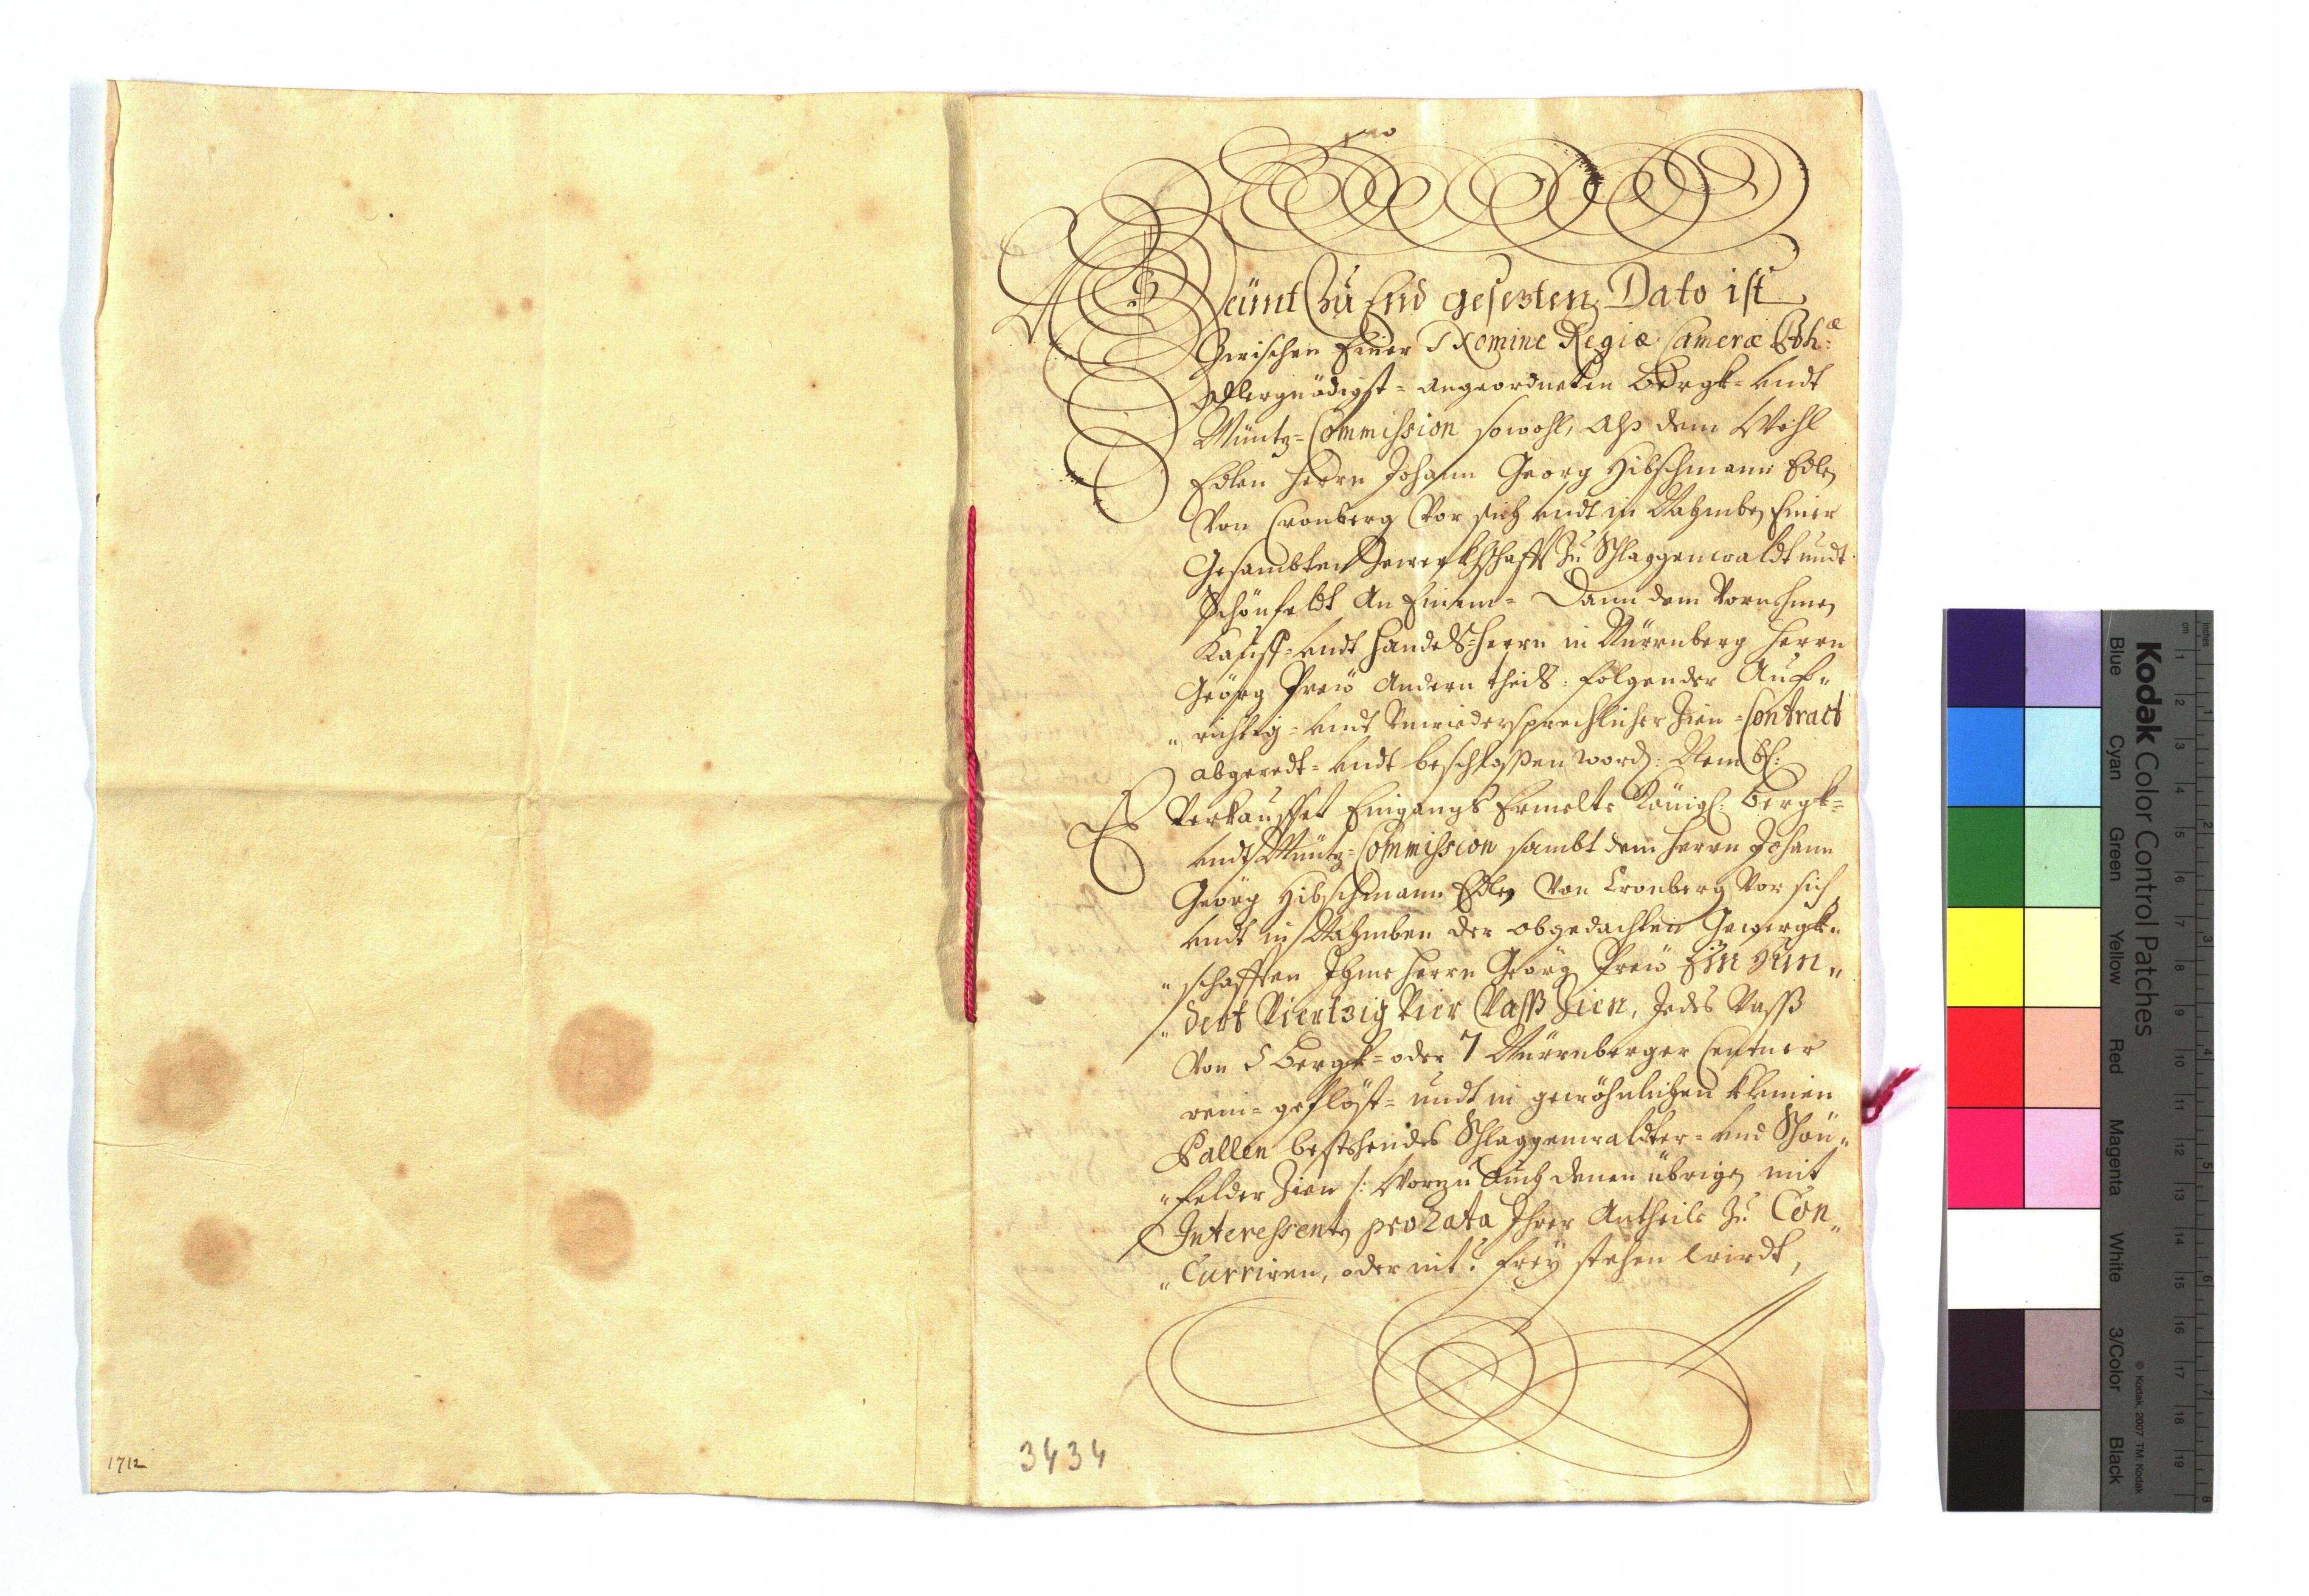 Heünt Zu End gesezten Dato ist
Zwischen Einer Nomine Regiæ Cameræ Boh:æ
Allergnädigst= angeordneten Bergk= undt
Müntz=Commission sowohl, Alß dem Wohl
Edlen Herrn Johann Georg Hibschmann Edlen
Von Cronberg Vor sich undt in Nahmben Einer
Gesambten Gewerkschafft Zu Schlaggenwaldt undt
Schönfeldt An Einem= Dann dem Vornehmen
Kauff= undt Handels=Herrn in Nürrnberg Herrn
Geörg Preü Andern theils: folgender Auf„
„richtig= undt Unwiedersprechlicher Zien=Contract
abgeredt= undt beschloßen word: Nembl:
Es Verkauffet Eingangs Ermelte Königl: Bergk=
undt Müntz=Commission sambt dem Herrn Johann
Geörg Hibschmann Edlen Von Cronberg Vor sich
undt in Nahmben der obgedachten Gewergk„
„schafften Ihme Herrn Geörg Preü Ein Hun„
„dert Viertzig Vier Vaß Zien, Jedes Vaß
Von 5 Bergk= oder 7 Nürrnberger Centner
rein= geflöst= undt in gewöhnlichen kleinen
Pallen bestehendes Schlaggenwaldter= und Schön„
„felder Zien /: Worzu Auch denen übrigen mit
Interessenten pro Rata Ihrer Antheile Zu Con„
„Curriren, oder nit? frey stehen wirdt,
3434
1712
Kodak Color Control Patches
Blue Cyan Green Yellow Red Magenta White 3/Color Black
© Kodak, 2007 TM: Kodak
inches 1 2 3 4 5 6 7 8
cm 1 2 3 4 5 6 7 8 9 10 11 12 13 14 15 16 17 18 19